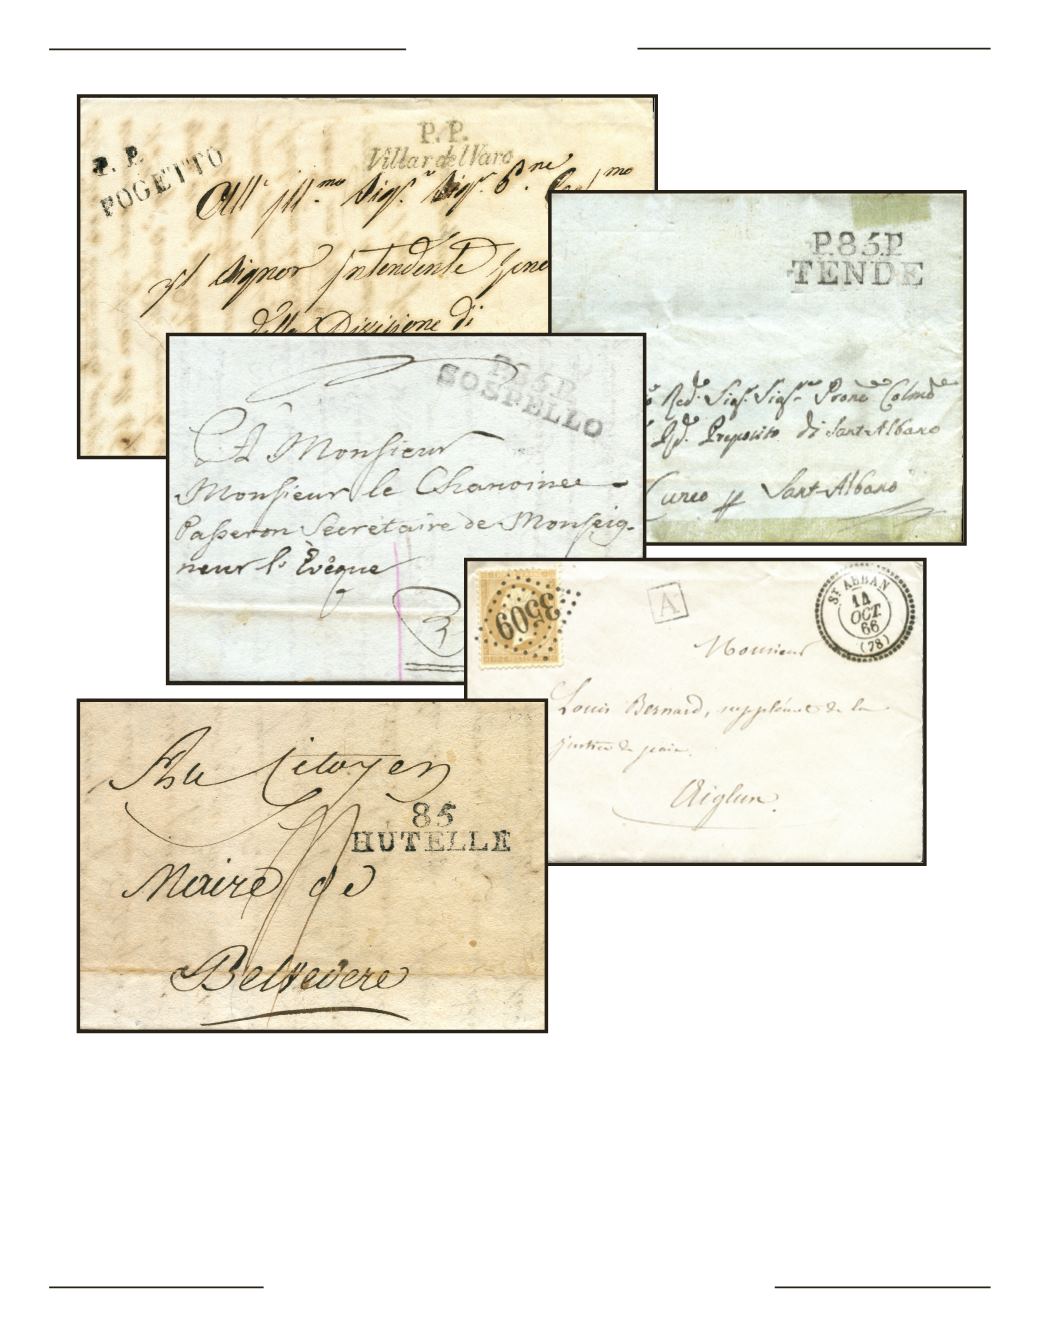 P. P.
POGETTO
P. P.
Villar del Varo
All' Ill.mo Sig.r Sig.r P.ne Col.mo
Il Signor Intendente Gene
della Divisione di
P.85.P.
TENDE
Red.o Sig.r Sig.r Prone Colmo
Preposito di Sant-Albano
Cuneo Sant-Albano
P.85.P.
SOSPELLO
A Monsieur
Monsieur le Chanoine
Passeron Secrétaire de Monseig-
neur l'Evêque
3509
A
ST AUBAN
14
OCT.
66
(78)
Monsieur
Louis Bernard, suppléant de la
justice de paix.
Aiglun.
Au Citoyen
85
HUTELLE
Maire de
Belvedere